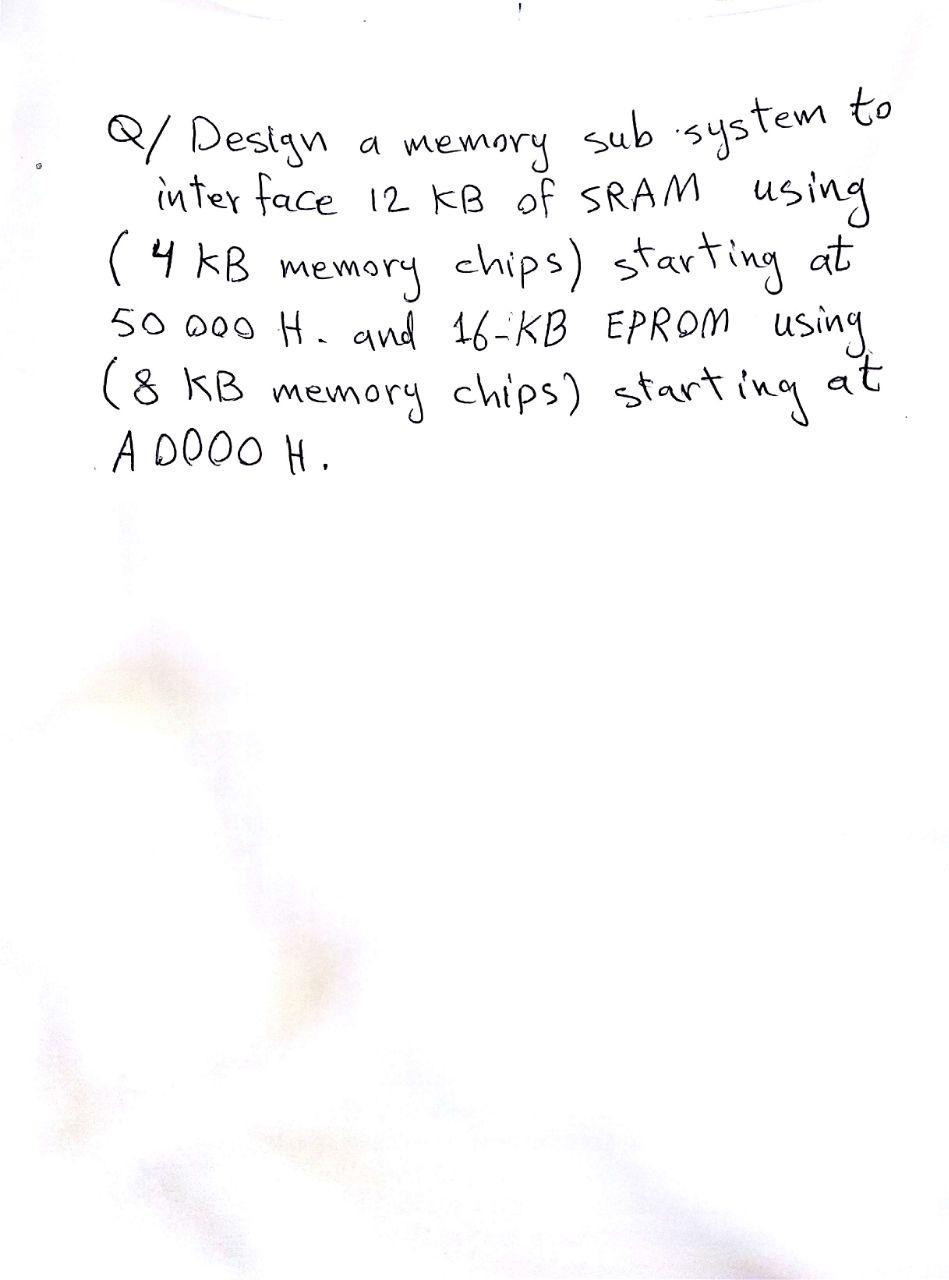 Q/ Design a memory sub system to
interface 12 KB of SRAM using
(4 KB memory chips) starting at
50 000 H. and 16-KB EPROM using
(8 KB memory chips) starting at
A 0000 H.